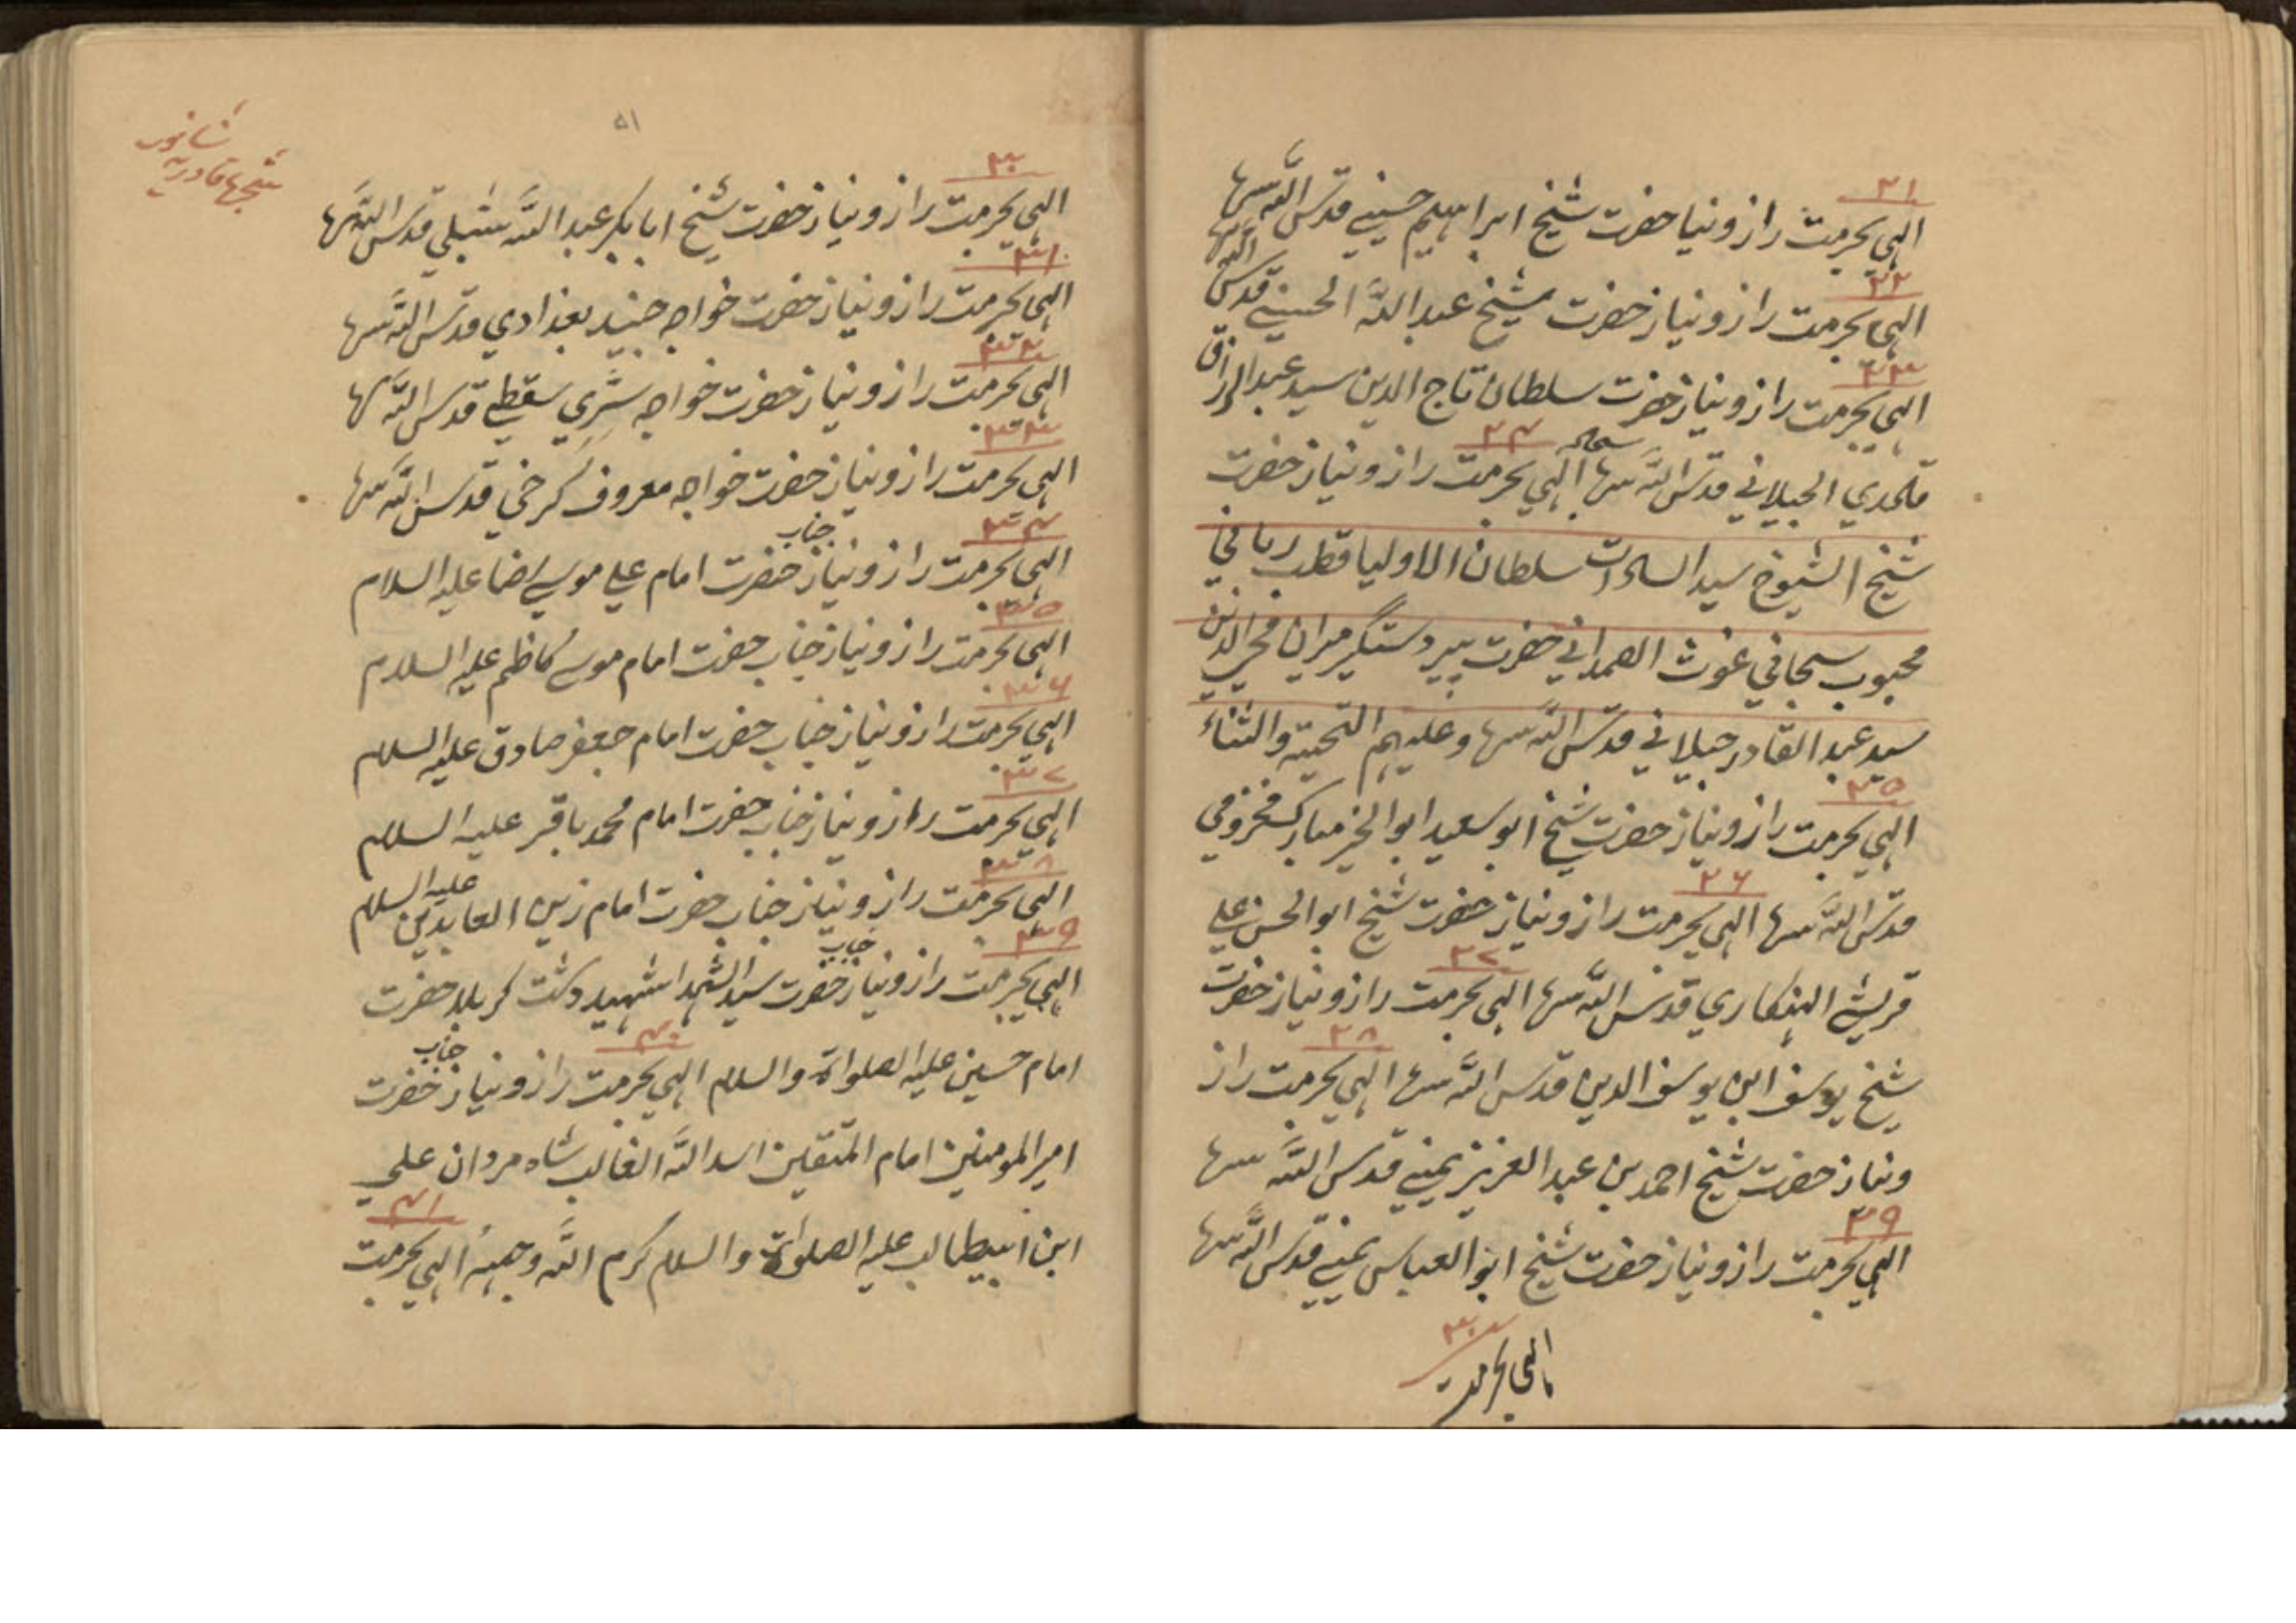 ۲۱
الہی بحرمت راز و نیاز حضرت شیخ ابراہیم حسینے قدس اللہ سرہا
۲۲
الہی بحرمت راز و نیاز حضرت شیخ عبد اللہ الحسینے قدس اللہ سرہا
۲۳
الہی بحرمت راز و نیاز حضرت سلطان تاج الدین سید عبد الرزاق
۲۴
الجیلانے قدس اللہ سرہا الہی بحرمت راز و نیاز حضرت
شیخ الشیوخ سید السادات سلطان الاولیا قطب ربانی
محبوب سبحانی غوث الصمدانے حضرت پیر دستگیر میران محی الدین
سید عبد القادر جیلانے قدس اللہ سرہا و علیہم التحیتہ والثناء
۲۵
الہی بحرمت راز و نیاز حضرت شیخ ابو سعید ابو الخیر مبارک مخزومی
۲۶
قدس اللہ سرہا الہی بحرمت راز و نیاز حضرت شیخ ابو الحسن علی
۲۷
قریشے الہنکاری قدس اللہ سرہا الہی بحرمت راز و نیاز حضرت
۲۸
شیخ یوسف ابن یوسف الدین قدس اللہ سرہا الہی بحرمت راز
و نیاز حضرت شیخ احمد بن عبد العزیز یمینے قدس اللہ سرہا
۲۹
الہی بحرمت راز و نیاز حضرت شیخ ابو العباس یمینے قدس اللہ سرہا
۳۰
الہی بحرمت
۵۱
شجرہا قادریہ
۳۰
الہی بحرمت راز و نیاز حضرت شیخ ابابکر عبد اللہ شبلی قدس اللہ سرہا
۳۱
الہی بحرمت راز و نیاز حضرت خواجہ جنید بغدادی قدس اللہ سرہا
۳۲
الہی بحرمت راز و نیاز حضرت خواجہ سری سقطے قدس اللہ سرہا
۳۳
الہی بحرمت راز و نیاز حضرت خواجہ معروف کرخی قدس اللہ سرہا
۳۴
الہی بحرمت راز و نیاز جناب حضرت امام علی موسے رضا علیہ السلام
۳۵
الہی بحرمت راز و نیاز جناب حضرت امام موسے کاظم علیہ السلام
۳۶
الہی بحرمت راز و نیاز جناب حضرت امام جعفر صادق علیہ السلام
۳۷
الہی بحرمت راز و نیاز جناب حضرت امام محمد باقر علیہ السلام
۳۸
الہی بحرمت راز و نیاز جناب حضرت امام زین العابدین علیہ السلام
۳۹
الہی بحرمت راز و نیاز جناب حضرت سید الشہدا شہید دشت کربلا حضرت
۴۰
امام حسین علیہ الصلواۃ والسلام الہی بحرمت راز و نیاز جناب حضرت
امیر المومنین امام المتقین اسد اللہ الغالب شاہ مردان علی
۴۱
ابن ابیطالب علیہ الصلواۃ والسلام کرم اللہ وجہہ الہی بحرمت